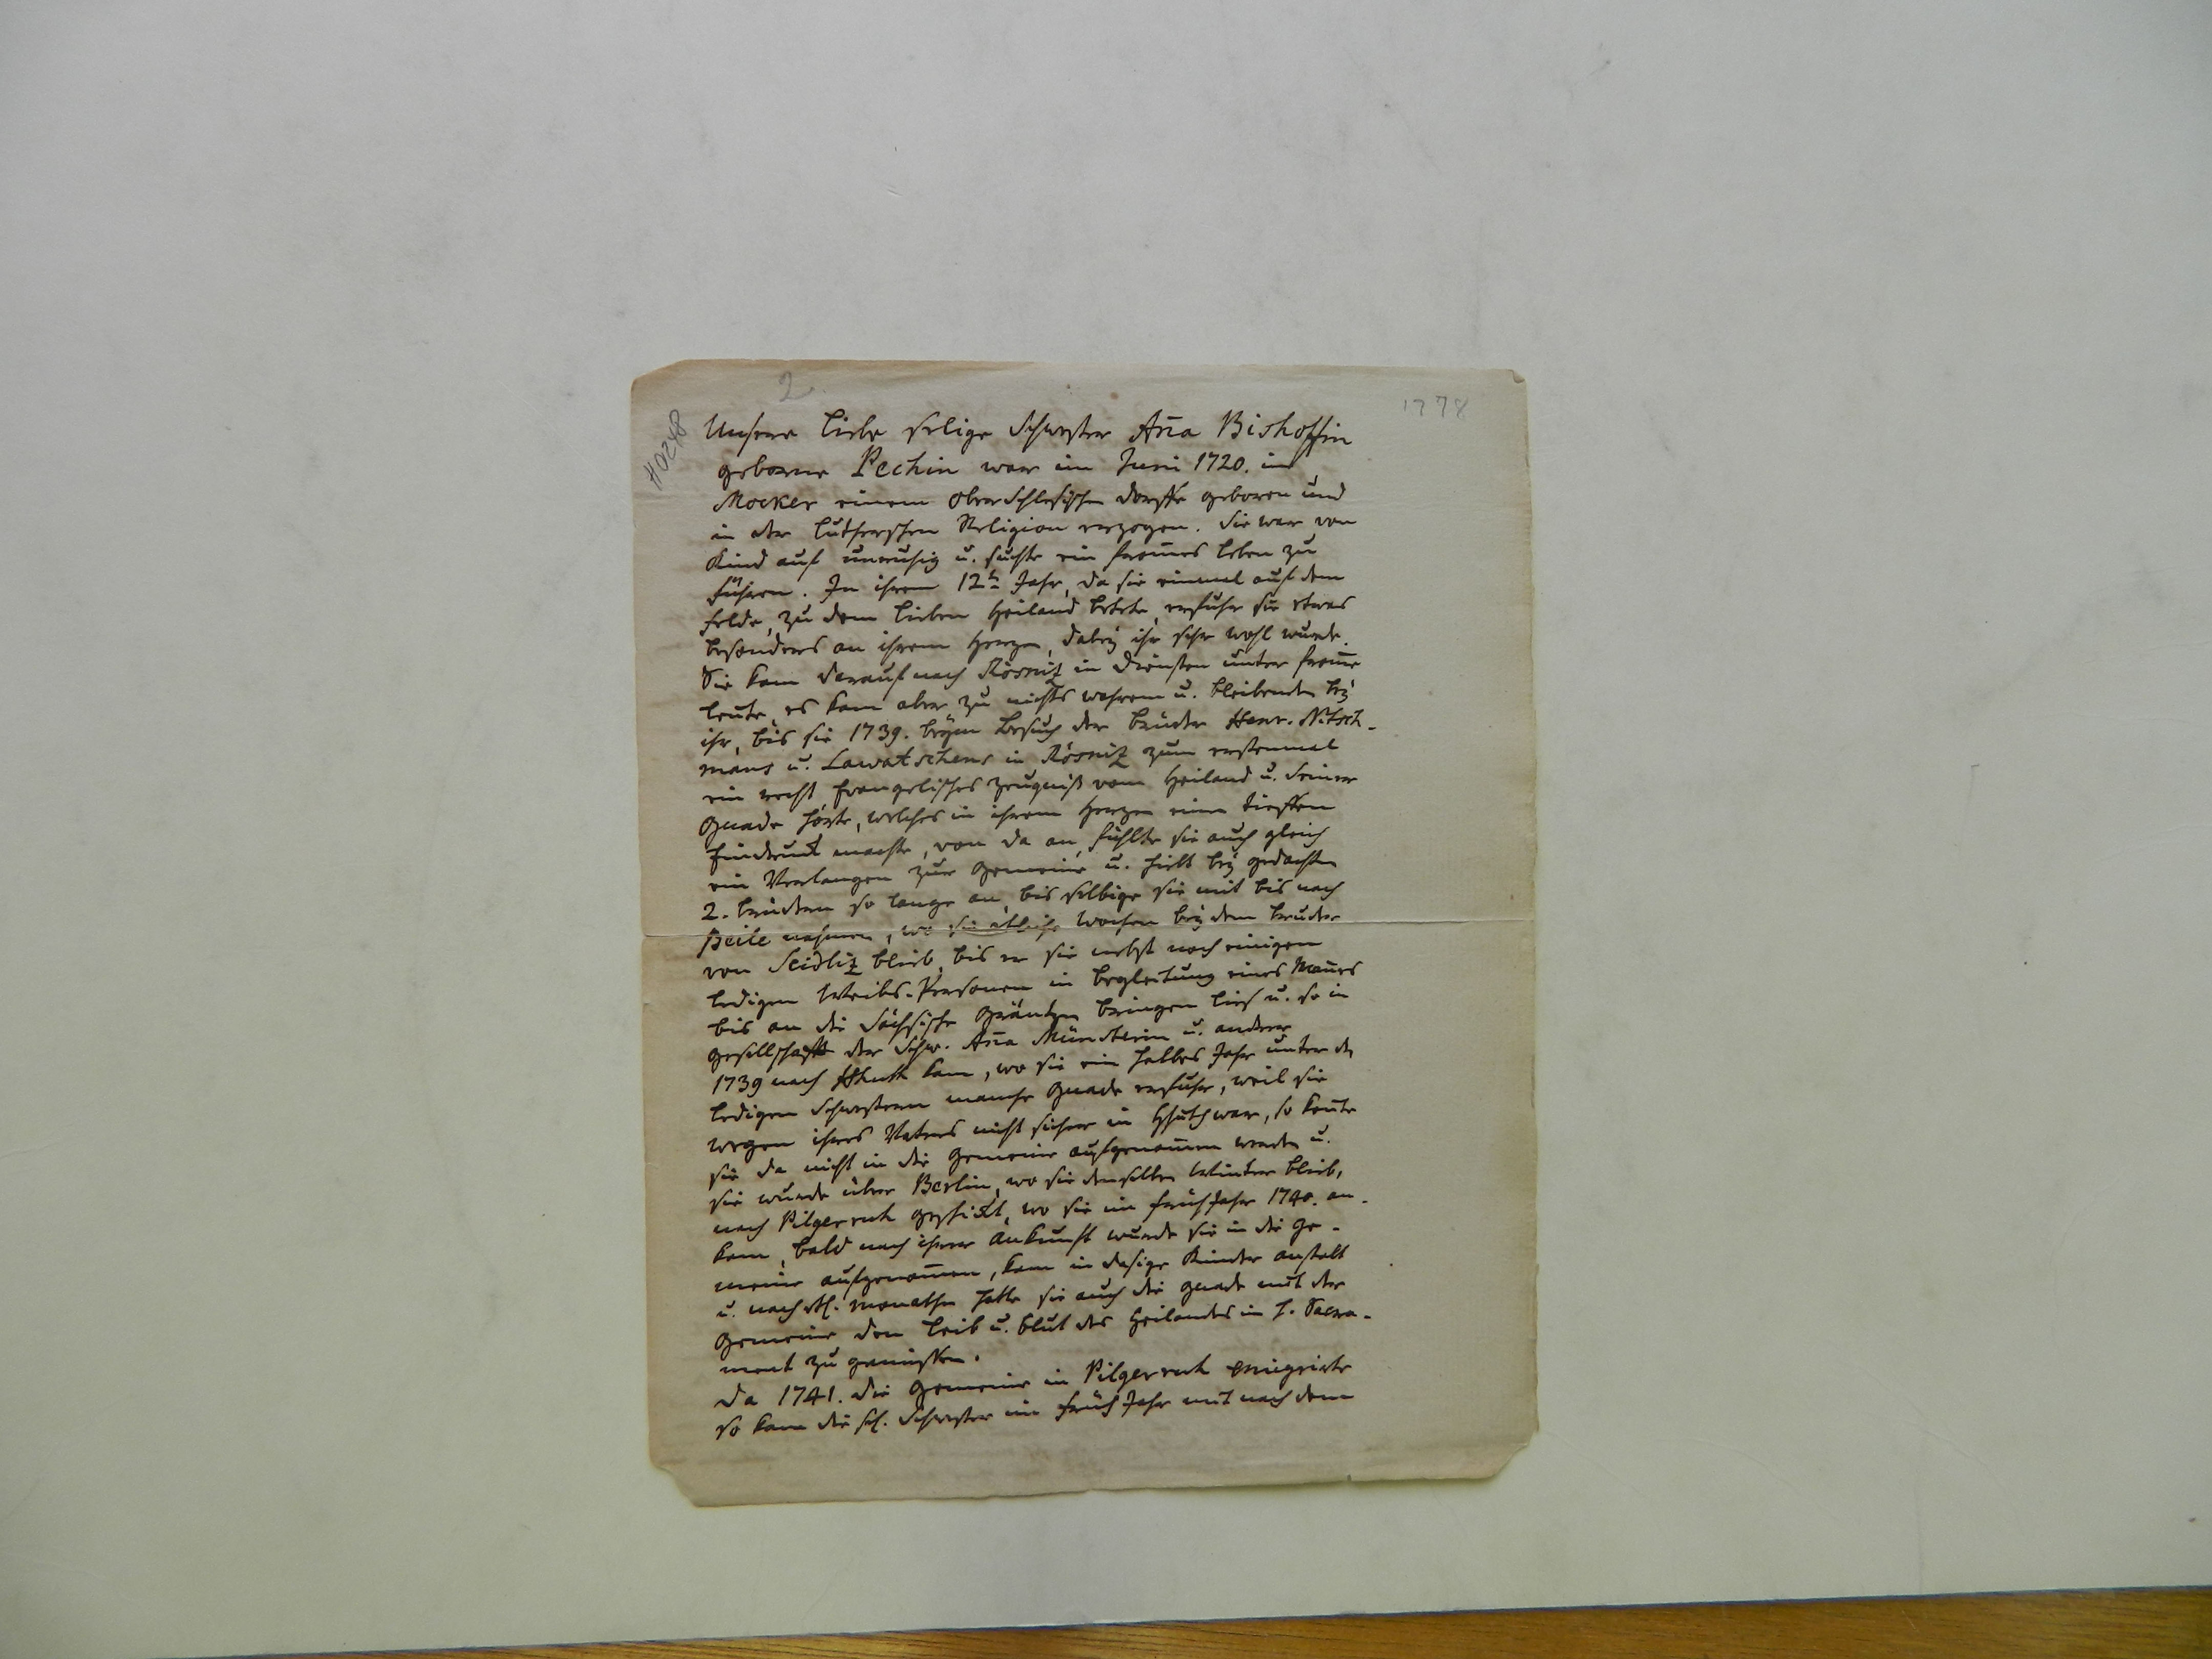 2
1778
H0248
Unsere liebe selige Schwester Ana Bishoffin
geborne Pechin war im Juni 1720. in
Mocker einem OberSchlesischen dorffe geboren und
in der Lutherschen Religion erzogen. Sie war von
Kind auf unruhig u. suchte ein fromes leben zu
führen. In ihrem 12ten Jahr, da sie einmal auf dem
felde, zu dem lieben Heiland betete, erfuhr sie etwas
besonders an ihrem Herzen, dabeÿ ihr sehr wohl wurde.
Sie kam darauf nach Rösnitz in diensten unter frome
leute, es kam aber zu nichts wahrem u. bleibenden beÿ
ihr, bis sie 1739. beÿm besuch der brüder Henr. Nitsch-
mans u. Lawatschens in Rösnitz zum erstenmal
ein recht Evangelisches Zeugniß vom Heiland u. Seiner
Gnade hörte, welches in ihrem Herzen einen tieffen
Eindruck machte, von da an, fühlte sie auch gleich
ein Verlangen zur Gemeine u. hielt beÿ gedachten
2. brüdern so lange an, bis selbige sie mit bis nach
Peile nahmen, wo sie etliche Wochen beÿ dem bruder
von Seidlitz blieb, bis er sie nebst noch einigen
ledigen Weibs-Personen in begleitung eines Manes
bis an die Sächsische Gräntzen bringen lies u. so in
gesellschafft der Schw. Ana Münsterin u. anderer
1739 nach HHuth kam, wo sie ein halbes Jahr unter den
ledigen Schwestern manche Gnade erfuhr, weil sie
wegen ihres Vaters nicht sicher in Hhuth war, so konte
sie da nicht in die Gemeine aufgenomen werden u.
sie wurde über Berlin, wo sie denselben Winter blieb,
nach Pilgerruh geschickt, wo sie im frühJahr 1740. an-
kam, bald nach ihrer Ankunft wurde sie in die Ge-
meine aufgenomen, kam in dasige Kinder anstalt
u. nach etl. monathen hatte sie auch die Gnade mit der
Gemeine den Leib u. blut des Heilandes im h. Sacra-
ment zu geniessen.
Da 1741. die Gemeine in Pilgerruh emigrirte
so kam die sel. Schwester im früh Jahr mit nach dem